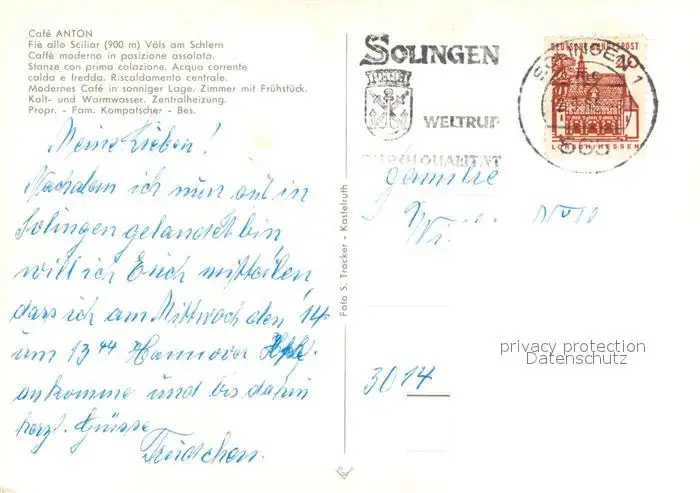 Café ANTON
Fiè allo Sciliar (900 m) Völs am Schlern
Caffè moderno in posizione assolata.
Stanze con prima colazione. Acqua corrente
calda e fredda. Riscaldamento centrale.
Modernes Café in sonniger Lage. Zimmer mit Frühstück.
Kalt- und Warmwasser. Zentralheizung.
Propr. - Fam. Kompatscher - Bes.
Meine Lieben!
Nachdem ich nun gut in
Solingen gelandet bin,
will ich Euch mitteilen,
dass ich am Mittwoch den 14
um 13 44 Hannover Hbf.
ankomme und bis dahin
herzl. Grüsse
Trudchen.
Foto S. Trocker - Kastelruth
SOLINGEN
WELTRUF
DURCH QUALITÄT
SOLINGEN 1
565
DEUTSCHE BUNDESPOST
20
LORSCH/HESSEN
Familie
3014
privacy protection
Datenschutz